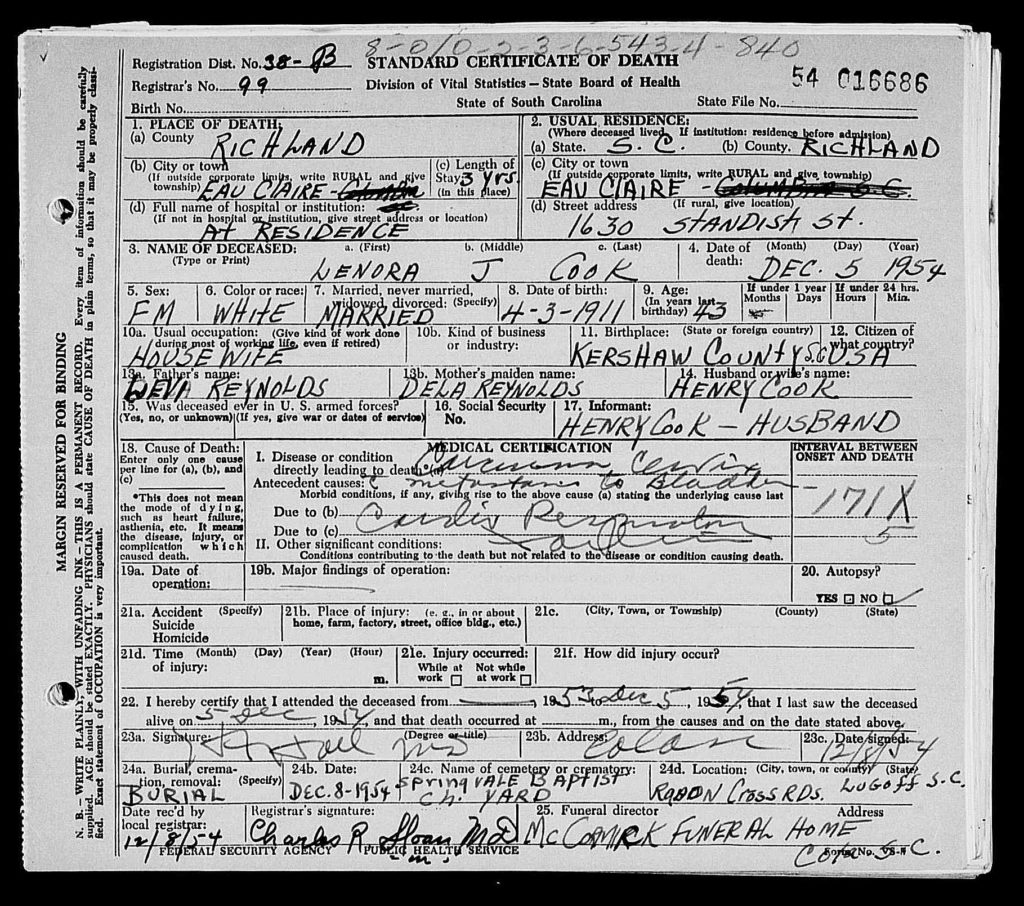 8-0/0-2-3-6-543-4-840
Registration Dist. No. 38-B STANDARD CERTIFICATE OF DEATH
54 016686
Registrar's No. 99 Division of Vital Statistics—State Board of Health
Birth No. State of South Carolina State File No.
1. PLACE OF DEATH:
(a) County RICHLAND
(b) City or town
(If outside corporate limits, write RURAL and give township) EAU CLAIRE -
(c) Length of Stay 3 yrs.
(in this place)
(d) Full name of hospital or institution:
(If not in hospital or institution, give street address or location)
At RESIDENCE
2. USUAL RESIDENCE:
(Where deceased lived. If institution: residence before admission)
(a) State. S. C. (b) County. RICHLAND
(c) City or town
(If outside corporate limits, write RURAL and give township)
EAU CLAIRE - COLUMBIA S.C.
(d) Street address (If rural, give location)
1630 STANDISH St.
3. NAME OF DECEASED: a. (First) b. (Middle) c. (Last)
(Type or Print) LENORA J COOK
4. Date of death: (Month) (Day) (Year)
DEC. 5 1954
5. Sex: FM
6. Color or race: WHITE
7. Married, never married, widowed, divorced: (Specify) MARRIED
8. Date of birth: 4-3-1911
9. Age: (In years last birthday) 43
If under 1 year Months Days
If under 24 hrs. Hours Min.
10a. Usual occupation: (Give kind of work done during most of working life, even if retired)
HOUSE WIFE
10b. Kind of business or industry:
11. Birthplace: (State or foreign country)
KERSHAW COUNTY S.C.
12. Citizen of what country? USA
13a. Father's name: REYNOLDS
13b. Mother's maiden name: DELA REYNOLDS
14. Husband or wife's name: HENRY COOK
15. Was deceased ever in U. S. armed forces?
(Yes, no, or unknown) (If yes, give war or dates of service)
16. Social Security No.
17. Informant: HENRY COOK - HUSBAND
18. Cause of Death:
Enter only one cause per line for (a), (b), and (c)
*This does not mean the mode of dying, such as heart failure, asthenia, etc. It means the disease, injury, or complication which caused death.
MEDICAL CERTIFICATION
I. Disease or condition directly leading to death* (a) Carcinoma Cervix
Antecedent causes: c metastasis to Bladder
Morbid conditions, if any, giving rise to the above cause (a) stating the underlying cause last
Due to (b) Cardio Respiratory
Due to (c) Failure
II. Other significant conditions:
Conditions contributing to the death but not related to the disease or condition causing death.
INTERVAL BETWEEN ONSET AND DEATH
171X
5
19a. Date of operation:
19b. Major findings of operation:
20. Autopsy?
YES NO
21a. Accident (Specify)
Suicide
Homicide
21b. Place of injury: (e. g., in or about home, farm, factory, street, office bldg., etc.)
21c. (City, Town, or Township) (County) (State)
21d. Time (Month) (Day) (Year) (Hour)
of injury: m.
21e. Injury occurred:
While at work Not while at work
21f. How did injury occur?
22. I hereby certify that I attended the deceased from , 1953, to Dec 5, 1954, that I last saw the deceased
alive on 5 Dec, 1954, and that death occurred at m., from the causes and on the date stated above.
23a. Signature: (Degree or title) MD
23b. Address:
23c. Date signed: 12/8/54
24a. Burial, cremation, removal: (Specify) BURIAL
24b. Date: DEC. 8-1954
24c. Name of cemetery or crematory: SPRINGVALE BAPTIST CH. YARD
24d. Location: (City, town, or county) (State)
CROSS RDS. LUGOFF S.C.
Date rec'd by local registrar: 12/8/54
Registrar's signature: Charles R. Sloan, MD
m.
25. Funeral director Address
McCORMICK FUNERAL HOME
Cola S. C.
FEDERAL SECURITY AGENCY PUBLIC HEALTH SERVICE Form No. VS-
MARGIN RESERVED FOR BINDING
N. B.—WRITE PLAINLY, WITH UNFADING INK—THIS IS A PERMANENT RECORD. Every item of information should be carefully
supplied. AGE should be stated EXACTLY. PHYSICIANS should state CAUSE OF DEATH in plain terms, so that it may be properly classi-
fied. Exact statement of OCCUPATION is very important.